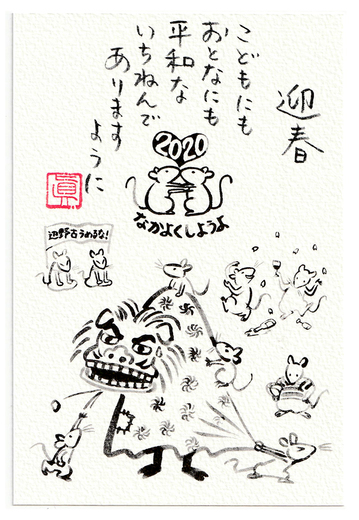 迎春
こどもにも
おとなにも
平和な
いちねんで
あります
ように
眞
2020
なかよくしようよ
辺野古うめるな!